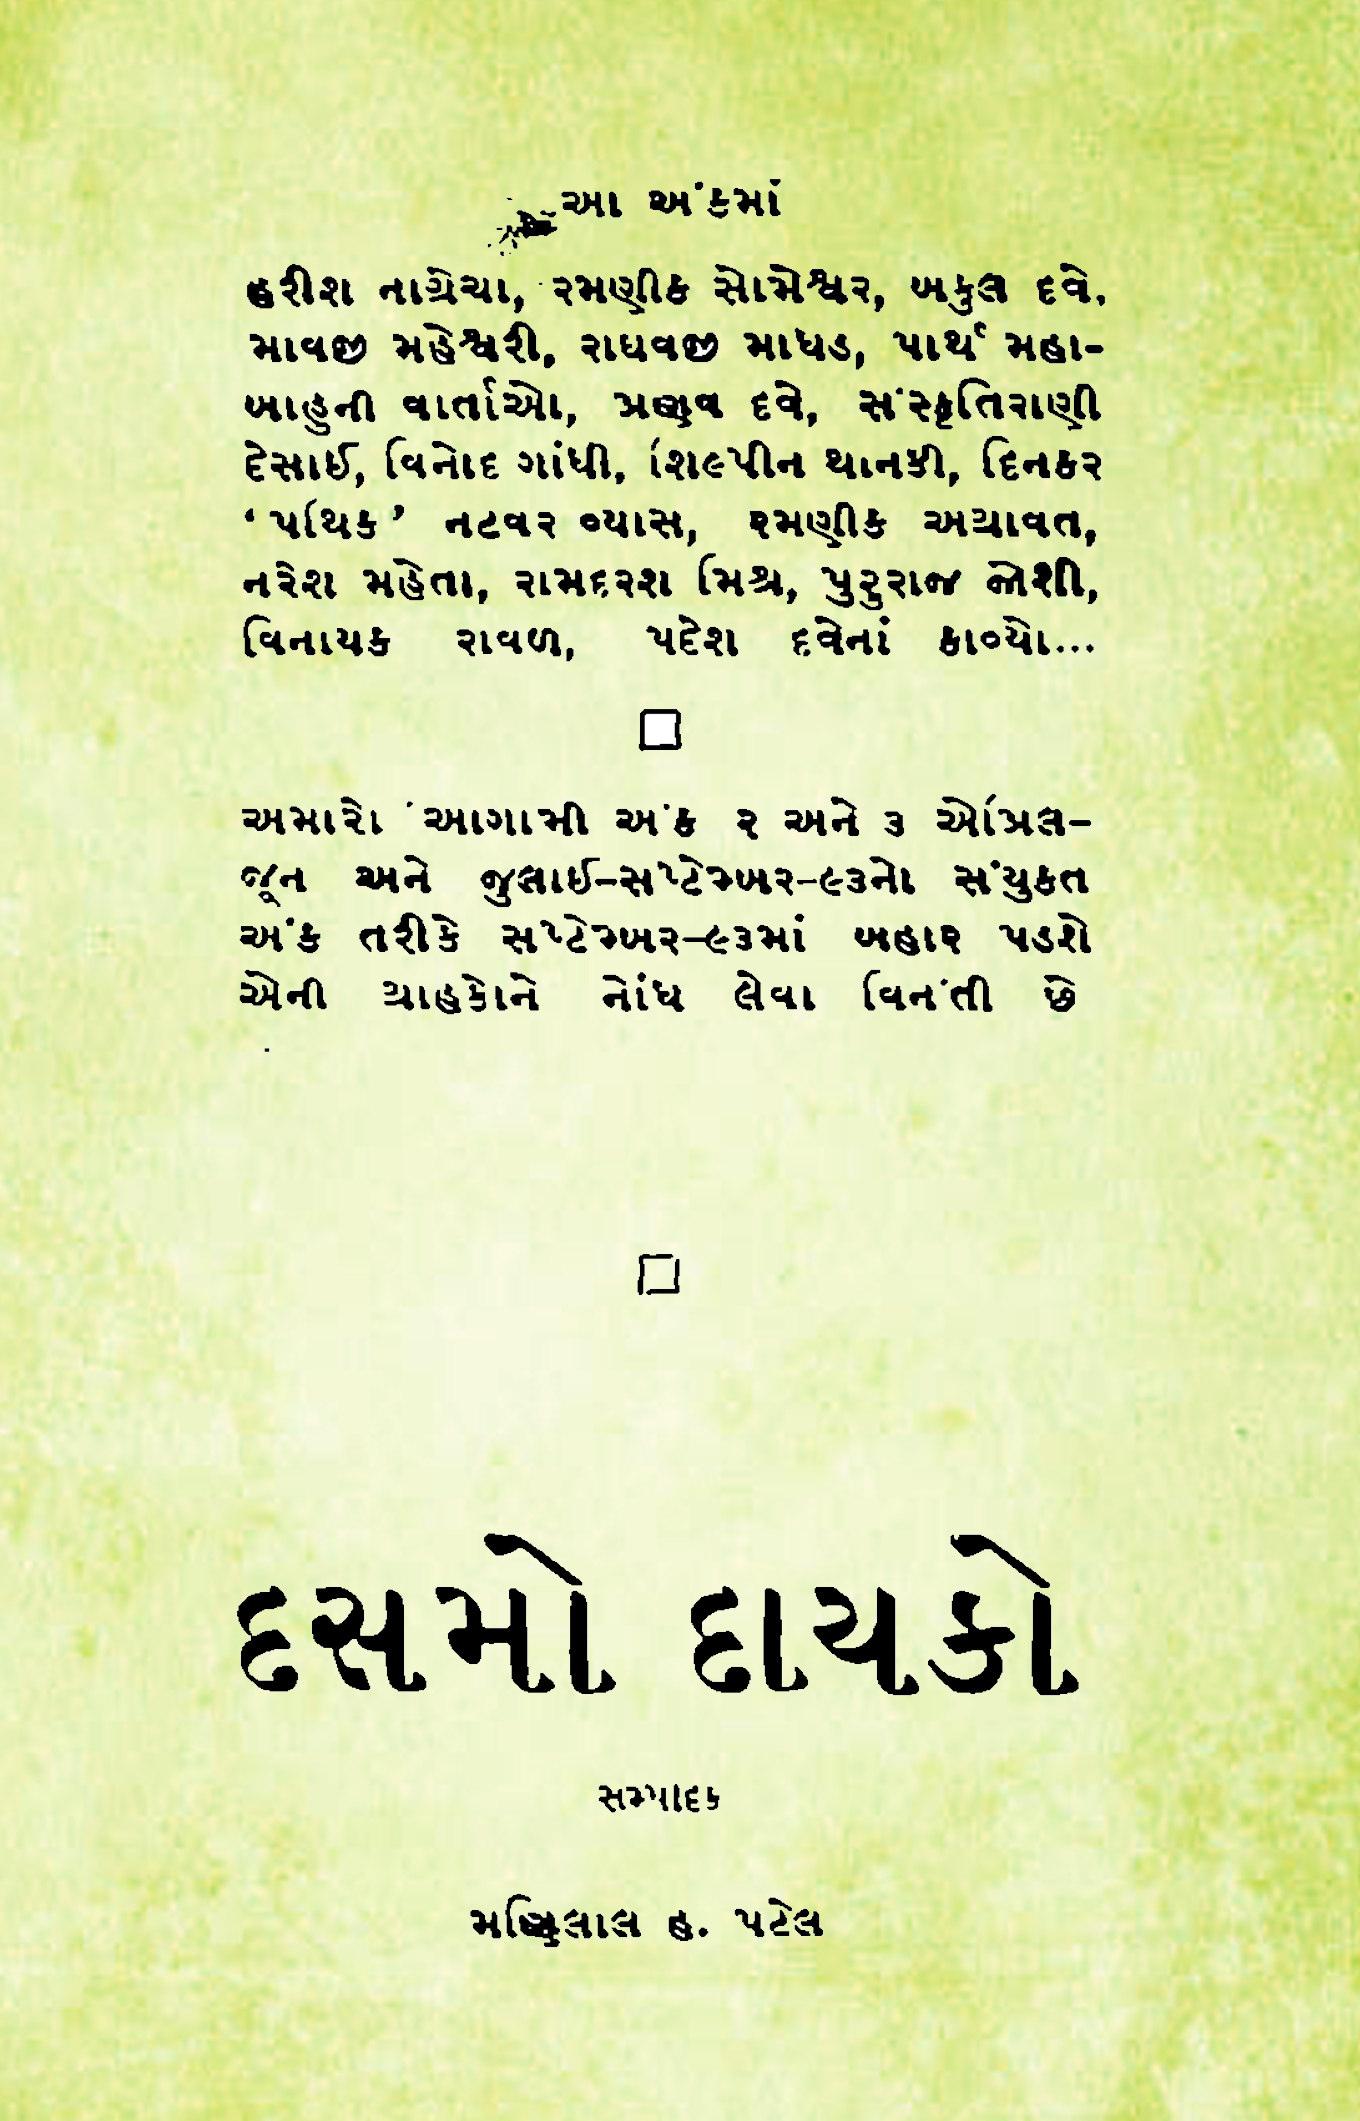 આ અંકમાં
હરીશ નાગ્રેચા, રમણીક સોમેશ્વર, બકુલ દવે.
માવજી મહેશ્વરી, રાઘવજી માધડ, પાર્થ મહા-
બાહુની વાર્તાઓ, પ્રણવ દવે, સંસ્કૃતિરાણી
દેસાઈ, વિનોદ ગાંધી, શિલ્પીન થાનકી, દિનકર
‘પથિક’ નટવર વ્યાસ, રમણીક અગ્રાવત,
નરેશ મહેતા, રામદરશ મિશ્ર, પુરુરાજ જોશી,
વિનાયક રાવળ, પદેશ દવેનાં કાવ્યો...
અમારો આગામી અંક ૨ અને ૩ એપ્રિલ-
જૂન અને જુલાઈ-સપ્ટેમ્બર-૯૩નો સંયુકત
અંક તરીકે સપ્ટેમ્બર-૯૩માં બહાર પડશે
એની ગ્રાહકોને નોંધ લેવા વિનંતી છે
દસમો દાયકો
સમ્પાદક
મણિલાલ હ. પટેલ